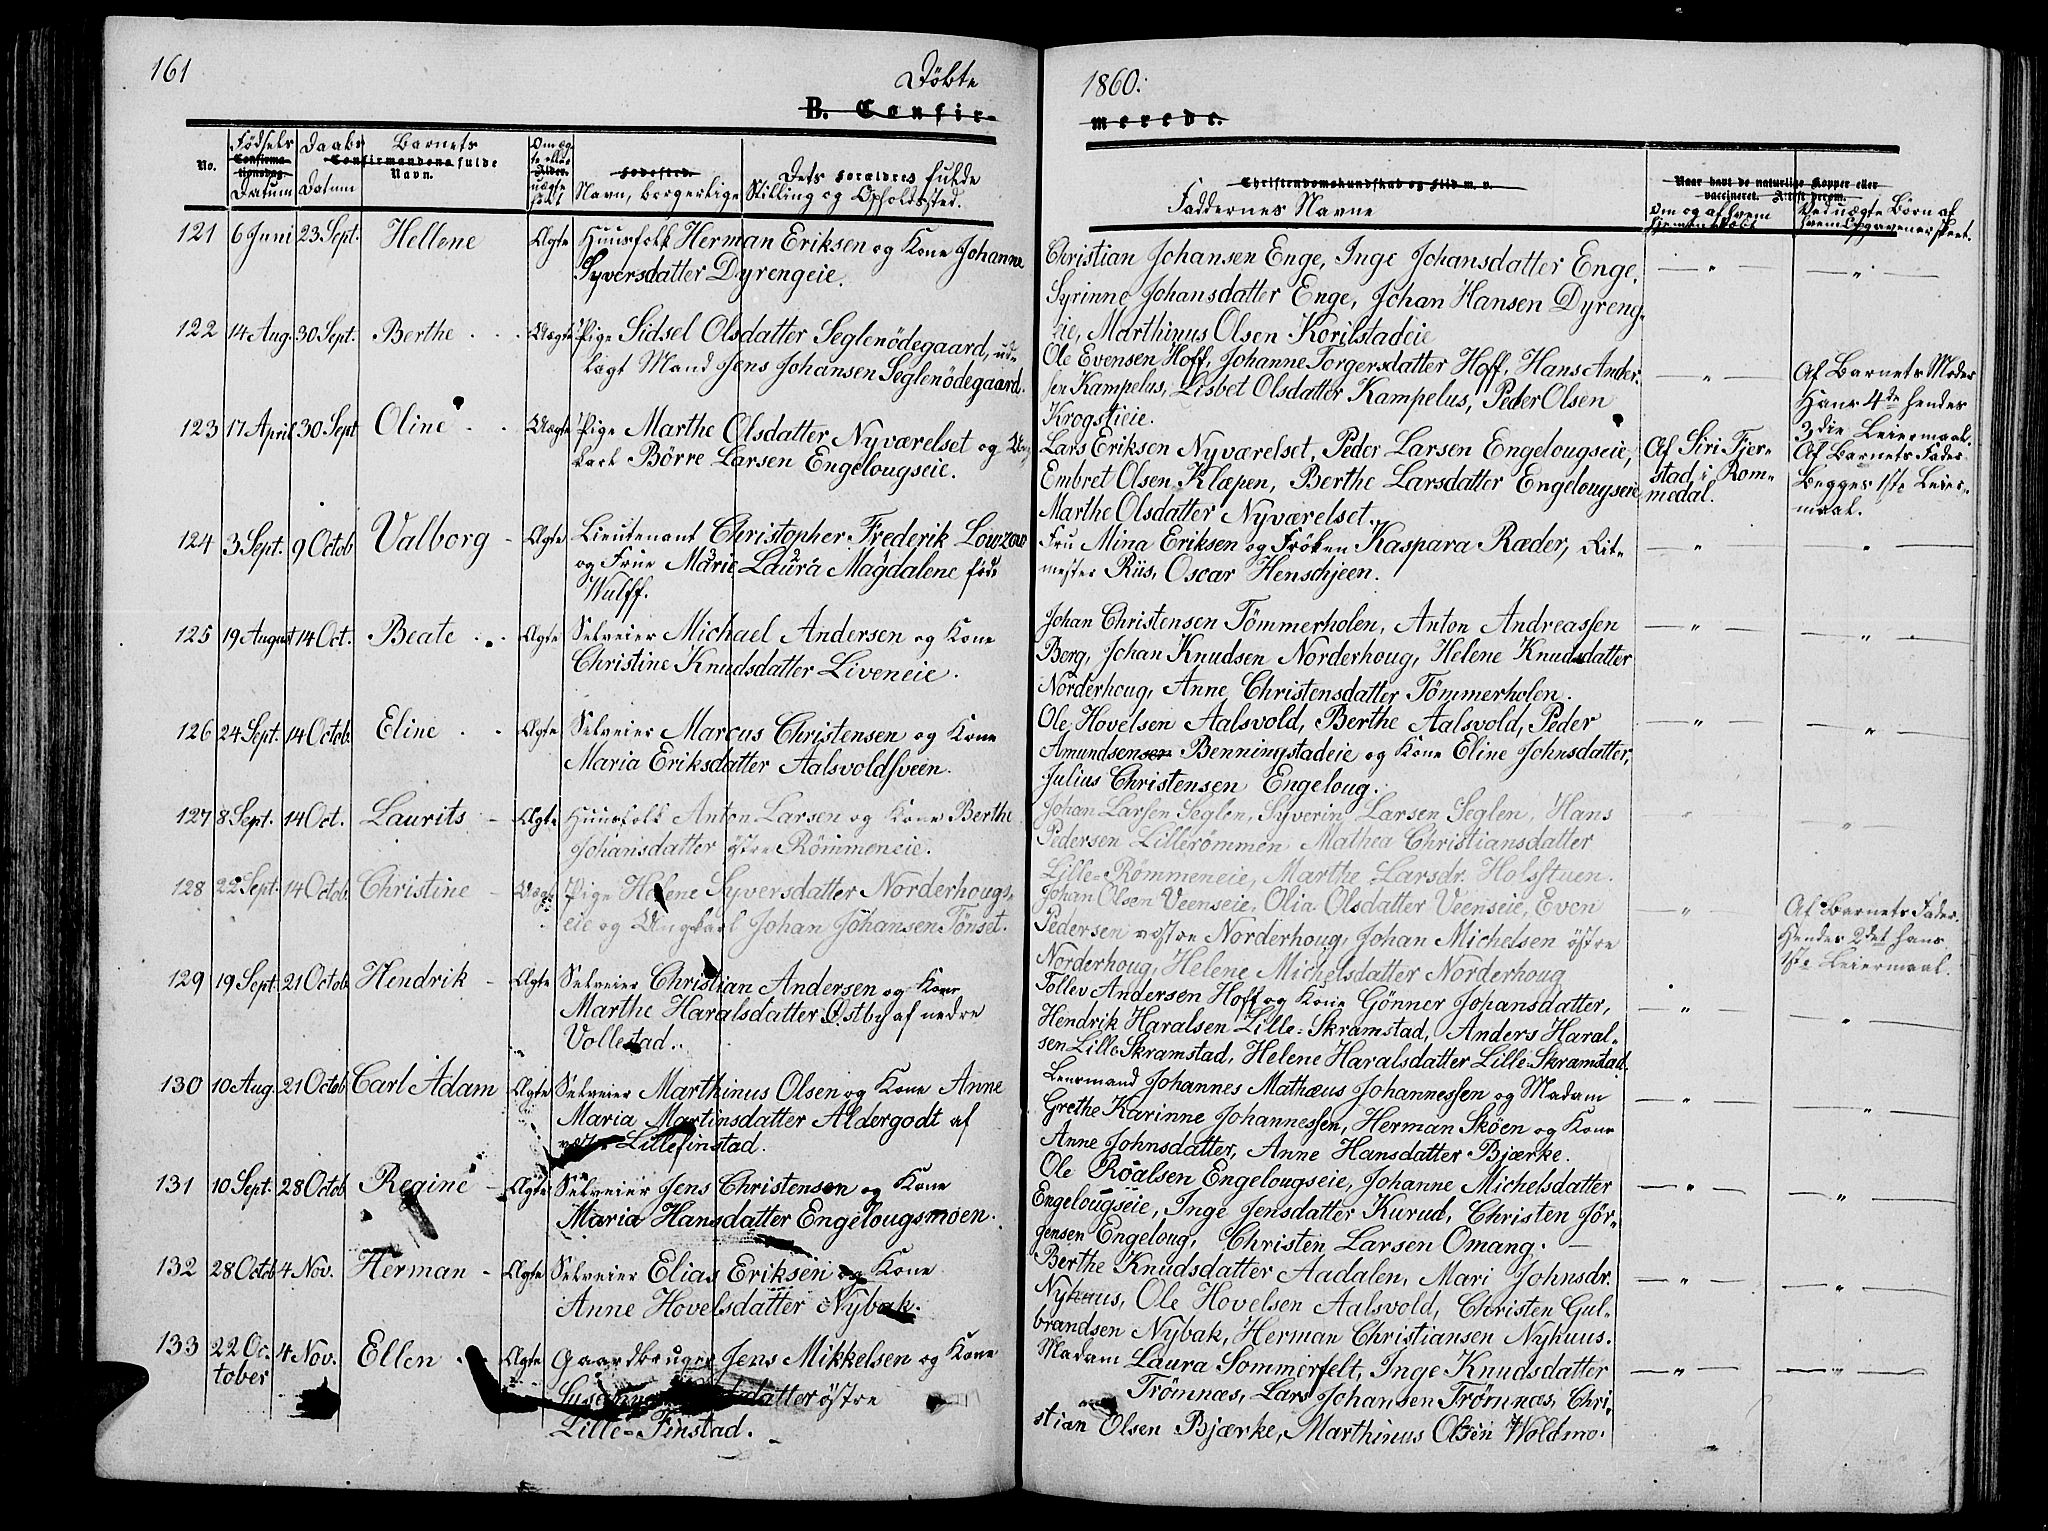 161
Döbte
1860.
B. Confir-
merede.
No.
Fødsels
Confirma-
tionsdag.
Datum
Daabs
Datum
Barnets
Confirmandens fulde
Navn.
Om æg-
te eller
Alder.
uægte
født
Fødested.
Dets Forældres fulde
Navn, borgerlige Stilling og Opholdssted.
Christendomskundskab og Flid m. v.
Faddernes Navne
Naar havt de naturlige Kopper eller
vaccineret. Attest derom.
Om og af hvem
hjemmedöbt
Ved uægte Börn af
hvem Opgaven er skeet.
121 6 Juni 23 Sept. Hellene Ægte Huusfolk Herman Eriksen og Kone Johanne
Syversdatter Dyrengeie.
Christian Johansen Enge, Inge Johansdatter Enge,
Syrinne Johansdatter Enge, Johan Hansen Dyreng-
eie, Marthinus Olsen Korilstadeie
122 14 Aug. 30 Sept. Berthe Uægte Pige Sidsel Olsdatter Seglenödegaard, ud-
lagt Mand Jens Johansen Seglenödegaard.
Ole Evensen Hoff, Johanne Torgersdatter Hoff, Hans Ander-
sen Kampelus, Lisbet Olsdatter Kampelus, Peder Olsen
Krogstieie.
Af Barnets Moder
Hans 4de hendes
3die Leiermaal.
123 17 April 30 Sept Oline Uægte Pige Marthe Olsdatter Nyværelset og Ung-
karl Börre Larsen Engelougseie.
Lars Eriksen Nyværelset, Peder Larsen Engelougseie,
Embret Olsen Klæpen, Berthe Larsdatter Engelougseie,
Marthe Olsdatter Nyværelset.
Af Siri Fjer-
stad i Rom-
medal.
Af Barnets Fader
Begges 1ste Leier-
maal.
124 3 Sept. 9 Octob Valborg Ægte Lieutenant Christopher Frederik Lowzow
og Frue Marie Laura Magdalene född
Wulff.
Fru Mina Eriksen og Fröken Kaspara Ræder, Rit-
mester Riis, Oscar Henschjeen.
125 19 August 14 Oct. Beate Ægte Selveier Michael Andersen og Kone
Christine Knudsdatter Liveneie.
Johan Christensen Tömmerholen, Anton Andreassen
Berg, Johan Knudsen Norderhoug, Helene Knudsdatter
Norderhoug, Anne Christensdatter Tömmerholen.
126 24 Sept. 14 Octob. Eline Ægte Selveier Marcus Christensen og Kone
Maria Eriksdatter Aalsvoldsveen.
Ole Hovelsen Aalsvold, Berthe Aalsvold, Peder
Amundsensen Benningstadeie og Kone Eline Johnsdatter,
Julius Christensen Engeloug.
127 8 Sept. 14 Oct. Laurits Ægte Huusfolk Anton Larsen og Kone Berthe
Johansdatter östre Römmeneie.
Johan Larsen Seglen, Syverin Larsen Seglen, Hans
Pedersen Lillerömmen Mathea Christiansdatter
Lille-Römmeneie, Marthe Larsdr. Holsstuen.
128 22 Sept. 14 Octob. Christine Uægte Pige Helene Syversdatter Norderhougs-
eie og Ungkarl Johan Johansen Tönset.
Johan Olsen Veenseie, Olia Olsdatter Veenseie, Even
Pedersen vestre Norderhoug, Johan Michelsen östre
Norderhoug, Helene Michelsdatter Norderhoug
Af Barnets Fader.
Hendes 2det hans
1ste Leiermaal.
129 19 Sept. 21 Octob. Hendrik Ægte Selveier Christian Andersen og Kone
Marthe Haralsdatter Östby af nedre
Vollestad.
Tollev Andersen Hoff og Kone Gönner Johansdatter,
Hendrik Haralsen Lille-Skramstad, Anders Haral-
sen Lille-Skramstad, Helene Haralsdatter Lille-Skramstad.
130 10 Aug. 21 Octob Carl Adam Ægte Selveier Marthinus Olsen og Kone Anne
Maria Martinsdatter Aldergodt af
vestre Lillefinstad.
Lensmand Johannes Mathæus Johannessen og Madam
Grethe Karinne Johannessen, Herman Sköen og Kone
Anne Johnsdatter, Anne Hansdatter Bjærke.
131 10 Sept. 28 Octob Regine Ægte Selveier Jens Christensen og Kone
Maria Hansdatter Engelougsmoen.
Ole Roalsen Engelougseie, Johanne Michelsdatter
Engelougseie, Inge Jensdatter Kurud, Christen Jör-
gensen Engeloug, Christen Larsen Omang.
132 28 Octob 4 Nov. Herman Ægte Selveier Elias Eriksen og Kone
Anne Hovelsdatter Nybak.
Berthe Knudsdatter Aadalen, Mari Johnsdr.
Nyhuus, Ole Hovelsen Aalsvold, Christen Gul-
brandsen Nybak, Herman Christiansen Nyhuus.
133 22 Oc- 4 Nov. Ellen Ægte Gaardbruger Jens Mikkelsen og Kone
tober
östre
Lille-Finstad.
Madam Laura Sommerfelt, Inge Knudsdatter
Trömnæs, Lars Johansen Trömnæs, Chri-
stian Olsen Bjærke, Marthinus Olsen Woldmo.